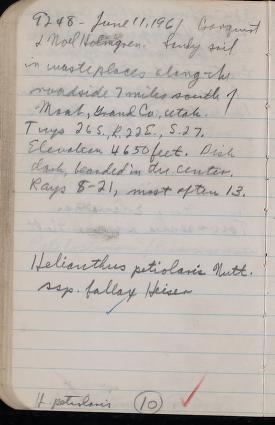 9248 - June 11, 1961 Cronquist
& Noel Holmgren. Sandy soil
in waste places along the
roadside 7 miles south of
Moab, Grand Co., Utah.
Twp 26 S., R. 22 E., S. 27.
Elevation 4650 feet. Disk
dark, bearded in the center.
Rays 8-21, most often 13.
Helianthus petiolaris Nutt.
ssp. fallax Heiser
H. petiolaris 10